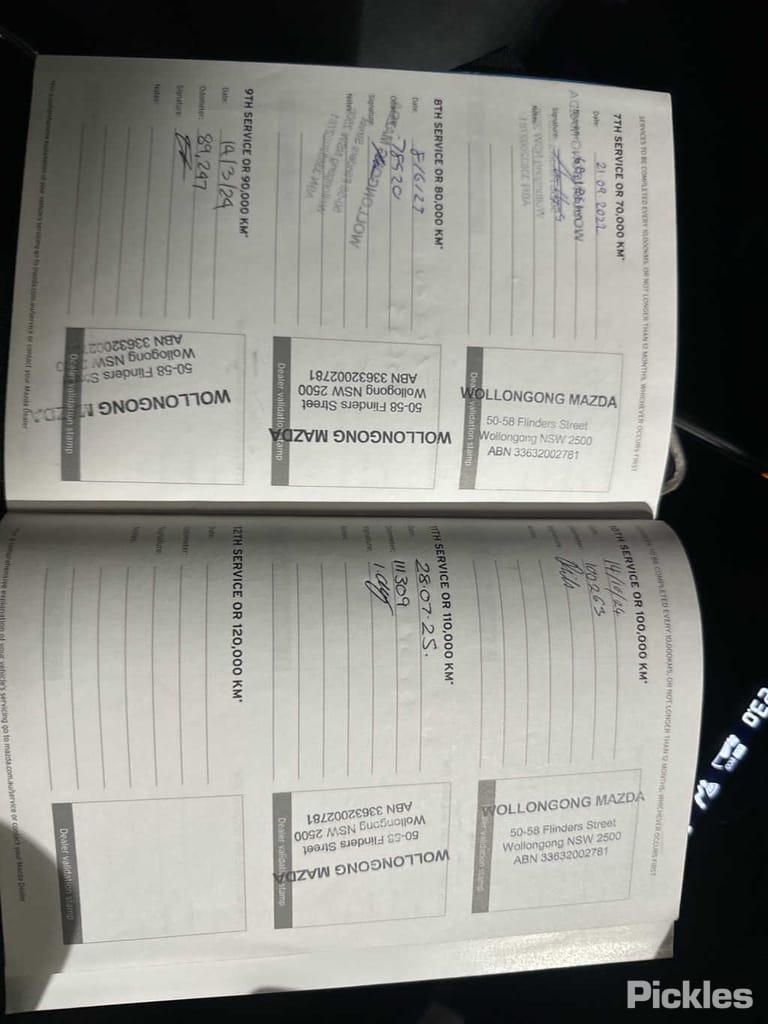 SERVICES TO BE COMPLETED EVERY 10,000KMS, OR NOT LONGER THAN 12 MONTHS, WHICHEVER OCCURS FIRST
7TH SERVICE OR 70,000 KM*
Date: 21.09.2022
Signature:
WOLLONGONG MAZDA
50-58 Flinders Street
Wollongong NSW 2500
ABN 33632002781
Dealer validation stamp
8TH SERVICE OR 80,000 KM*
Date: 8/6/23
78520
Signature:
Notes:
WOLLONGONG MAZDA
50-58 Flinders Street
Wollongong NSW 2500
ABN 33632002781
Dealer validation stamp
9TH SERVICE OR 90,000 KM*
Date: 14/3/24
Odometer: 89,247
Signature:
Notes:
WOLLONGONG MAZDA
50-58 Flinders
Wollongong NSW
ABN 33632002781
Dealer validation stamp
*For a comprehensive explanation of your vehicle's servicing go to mazda.com.au/service or contact your Mazda Dealer
SERVICES TO BE COMPLETED EVERY 10,000KMS, OR NOT LONGER THAN 12 MONTHS, WHICHEVER OCCURS FIRST
10TH SERVICE OR 100,000 KM*
14/10/24
100263
WOLLONGONG MAZDA
50-58 Flinders Street
Wollongong NSW 2500
ABN 33632002781
Dealer validation stamp
11TH SERVICE OR 110,000 KM*
Date: 28.07.25.
Odometer: 111309
Signature:
Notes:
WOLLONGONG MAZDA
50-58 Flinders Street
Wollongong NSW 2500
ABN 33632002781
Dealer validation stamp
12TH SERVICE OR 120,000 KM*
Date:
Odometer:
Signature:
Notes:
Dealer validation stamp
*For a comprehensive explanation of your vehicle's servicing go to mazda.com.au/service or contact your Mazda Dealer
Pickles